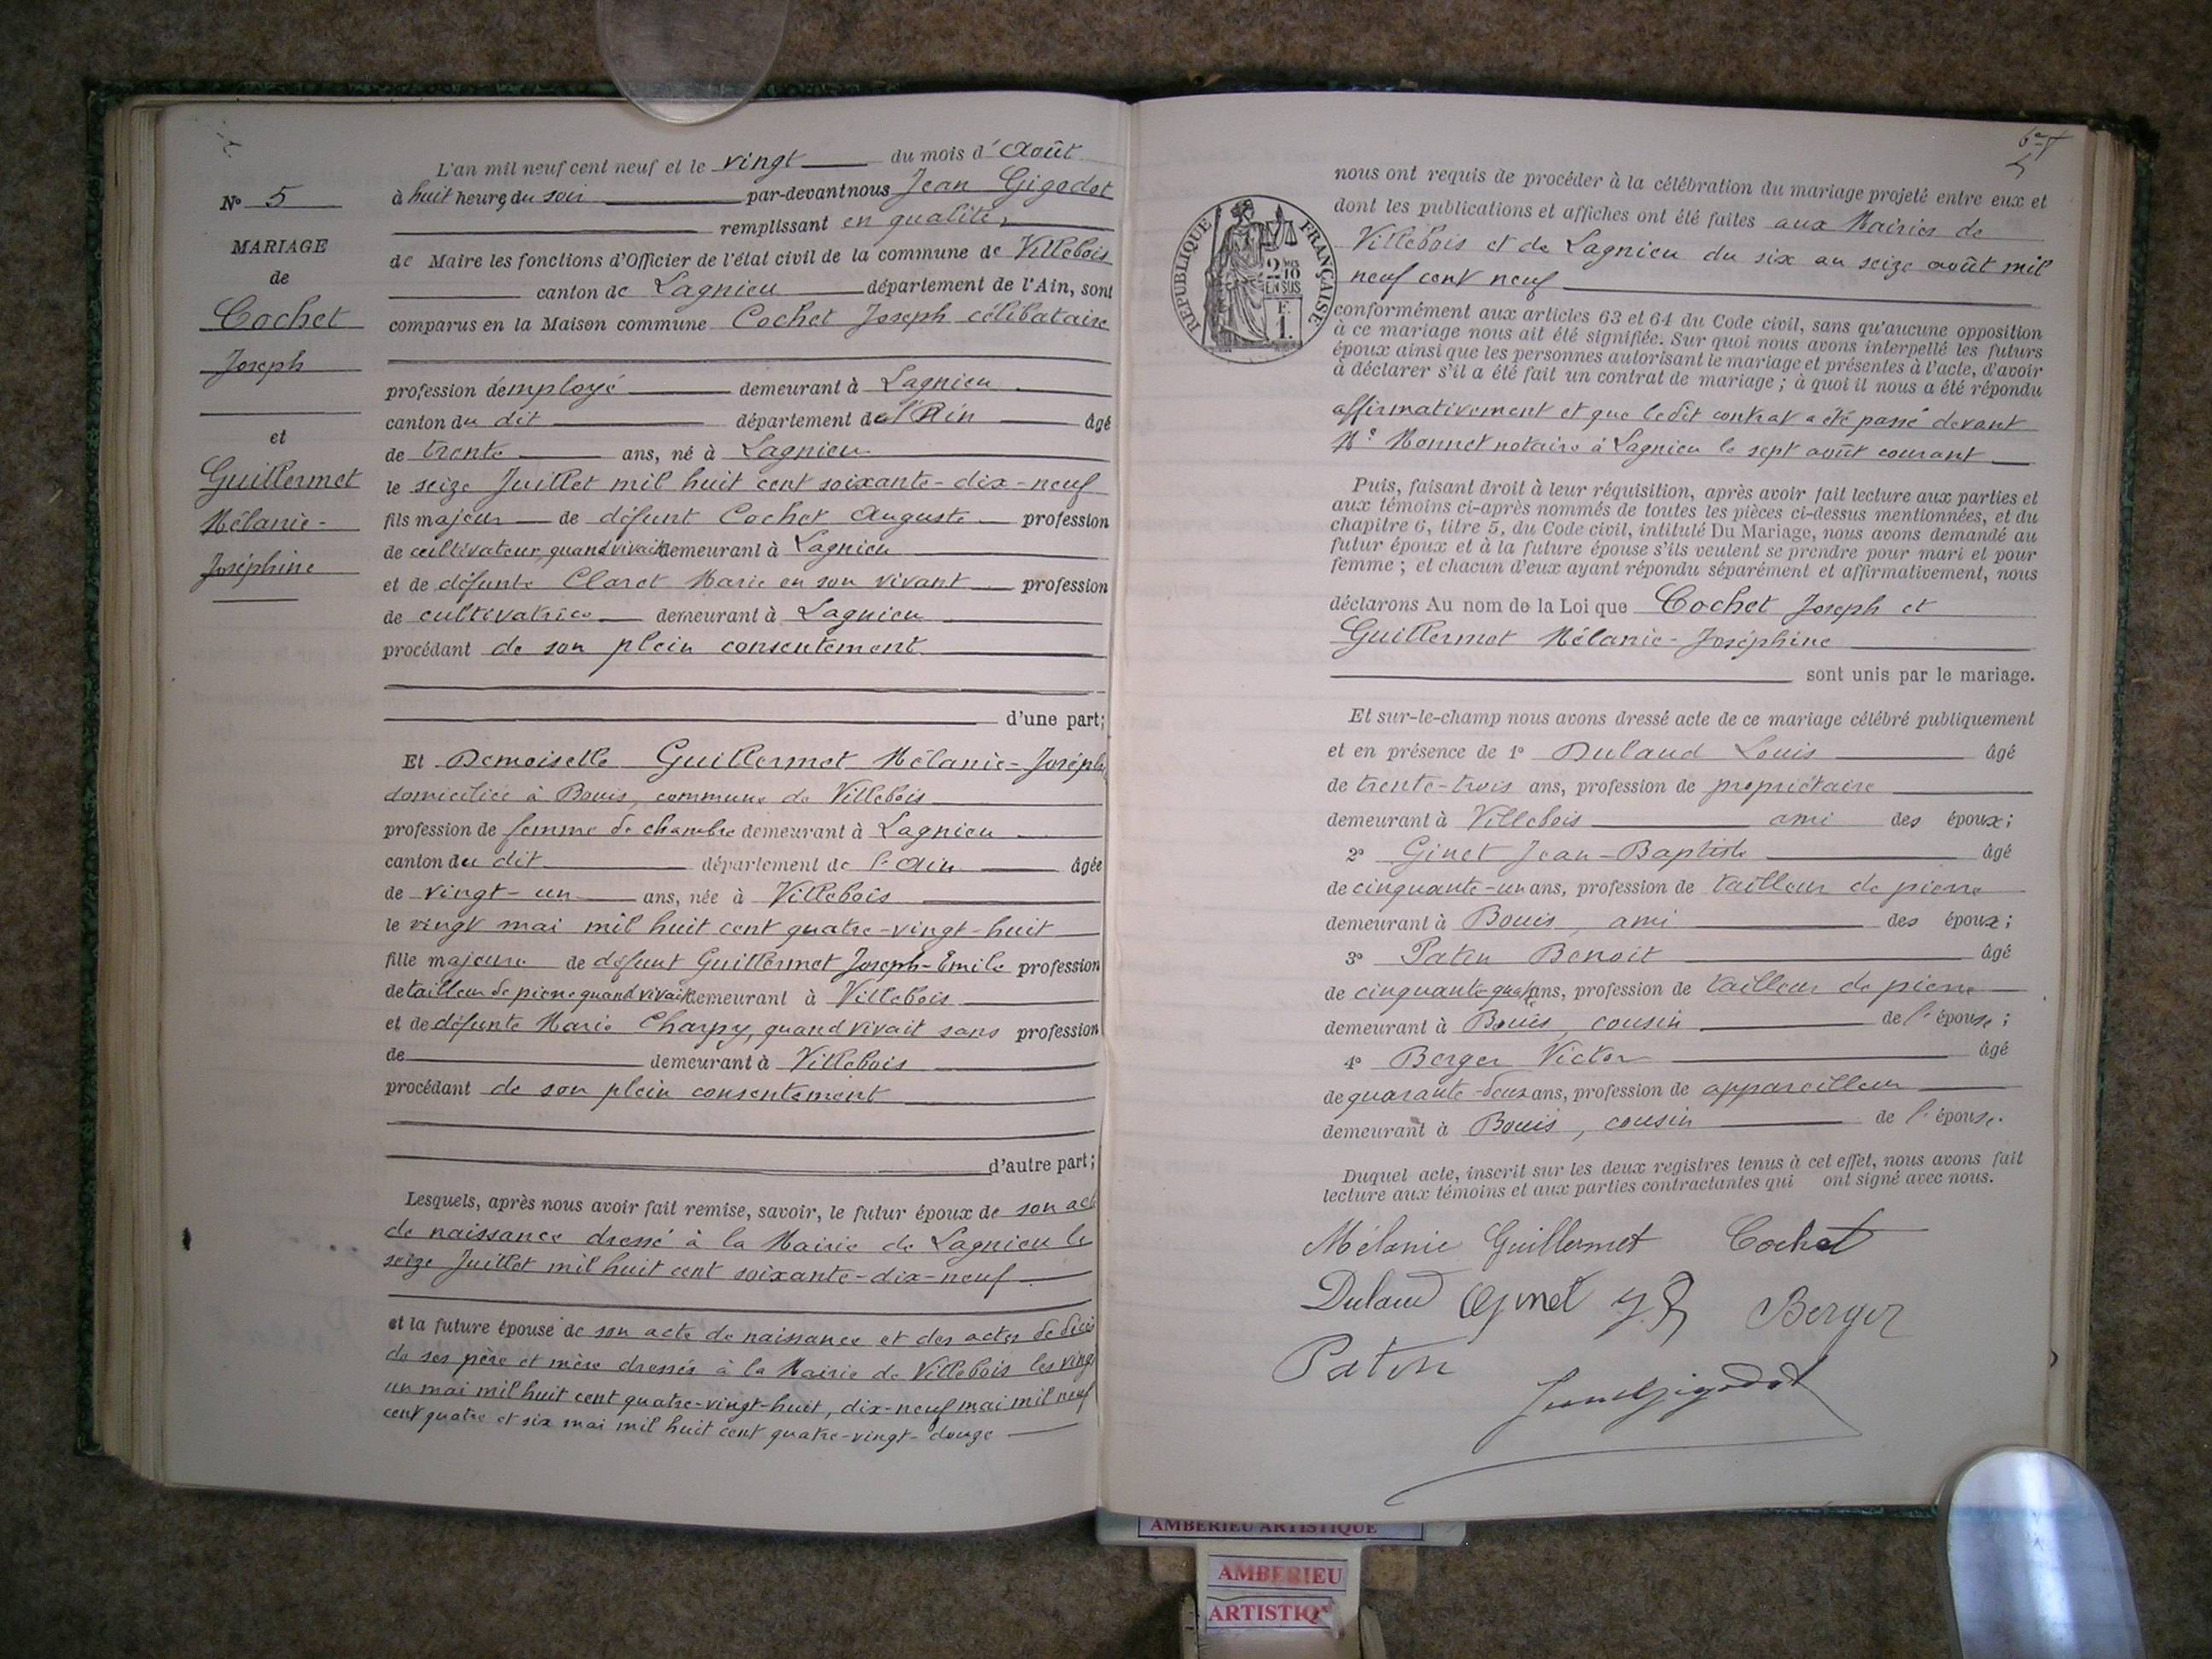 L'an mil neuf cent neuf et le vingt du mois d'Août
à huit heures du soir par-devant nous Jean Gigodot
remplissant en qualité
de Maire les fonctions d'Officier de l'état civil de la commune de Villebois
canton de Lagnieu département de l'Ain, sont
comparus en la Maison commune Cochet Joseph célibataire
profession d'employé demeurant à Lagnieu
canton du dit département de l'Ain âgé
de trente ans, né à Lagnieu
le seize Juillet mil huit cent soixante-dix-neuf
fils majeur de défunt Cochet Auguste profession
de cultivateur, quand vivait demeurant à Lagnieu
et de défunte Claret Marie en son vivant profession
de cultivatrice demeurant à Lagnieu
procédant de son plein consentement
d'une part;
Et Demoiselle Guillermet Mélanie-Joséphi
domiciliée à Bouis, commune de Villebois
profession de femme de chambre demeurant à Lagnieu
canton du dit département de l'Ain âgée
de vingt-un ans, née à Villebois
le vingt mai mil huit cent quatre-vingt-huit
fille majeure de défunt Guillermet Joseph-Emile profession
de tailleur de pierre quand vivait demeurant à Villebois
et de défunte Marie Charpy, quand vivait sans profession
de demeurant à Villebois
procédant de son plein consentement
d'autre part;
Lesquels, après nous avoir fait remise, savoir, le futur époux de son acte
de naissance dressé à la Mairie de Lagnieu le
seize Juillet mil huit cent soixante-dix-neuf
et la future épouse de son acte de naissance et des actes de décès
de ses père et mère dressés à la Mairie de Villebois les vingt
un mai mil huit cent quatre-vingt-huit, dix-neuf mai mil neuf
cent quatre et six mai mil huit cent quatre-vingt-douze
N° 5
MARIAGE
de
Cochet
Joseph
et
Guillermet
Mélanie-
Joséphine
5
RÉPUBLIQUE FRANÇAISE
2 10
EN SUS
F.
1.
nous ont requis de procéder à la célébration du mariage projeté entre eux et
dont les publications et affiches ont été faites aux Mairies de
Villebois et de Lagnieu du six au seize août mil
neuf cent neuf
conformément aux articles 63 et 64 du Code civil, sans qu'aucune opposition
à ce mariage nous ait été signifiée. Sur quoi nous avons interpellé les futurs
époux ainsi que les personnes autorisant le mariage et présentes à l'acte, d'avoir
à déclarer s'il a été fait un contrat de mariage ; à quoi il nous a été répondu
affirmativement et que ledit contrat a été passé devant
Me Monnet notaire à Lagnieu le sept août courant
Puis, faisant droit à leur réquisition, après avoir fait lecture aux parties et
aux témoins ci-après nommés de toutes les pièces ci-dessus mentionnées, et du
chapitre 6, titre 5, du Code civil, intitulé Du Mariage, nous avons demandé au
futur époux et à la future épouse s'ils veulent se prendre pour mari et pour
femme ; et chacun d'eux ayant répondu séparément et affirmativement, nous
déclarons Au nom de la Loi que Cochet Joseph et
Guillermet Mélanie-Joséphine
sont unis par le mariage.
Et sur-le-champ nous avons dressé acte de ce mariage célébré publiquement
et en présence de 1° Dulaud Louis âgé
de trente-trois ans, profession de propriétaire
demeurant à Villebois ami des époux;
2° Ginet Jean-Baptiste âgé
de cinquante-un ans, profession de tailleur de pierre
demeurant à Bouis, ami des époux;
3° Paten Benoit âgé
de cinquante-quatre ans, profession de tailleur de pierre
demeurant à Bouis, cousin de l'épouse;
4° Berger Victor âgé
de quarante-deux ans, profession de appareilleur
demeurant à Bouis, cousin de l'épouse.
Duquel acte, inscrit sur les deux registres tenus à cet effet, nous avons fait
lecture aux témoins et aux parties contractantes qui ont signé avec nous.
Mélanie Guillermet Cochet
Dulaud Ginet Berger
Paten
Jean Gigodot
AMBERIEU ARTISTIQUE
AMBERIEU
ARTISTIQ